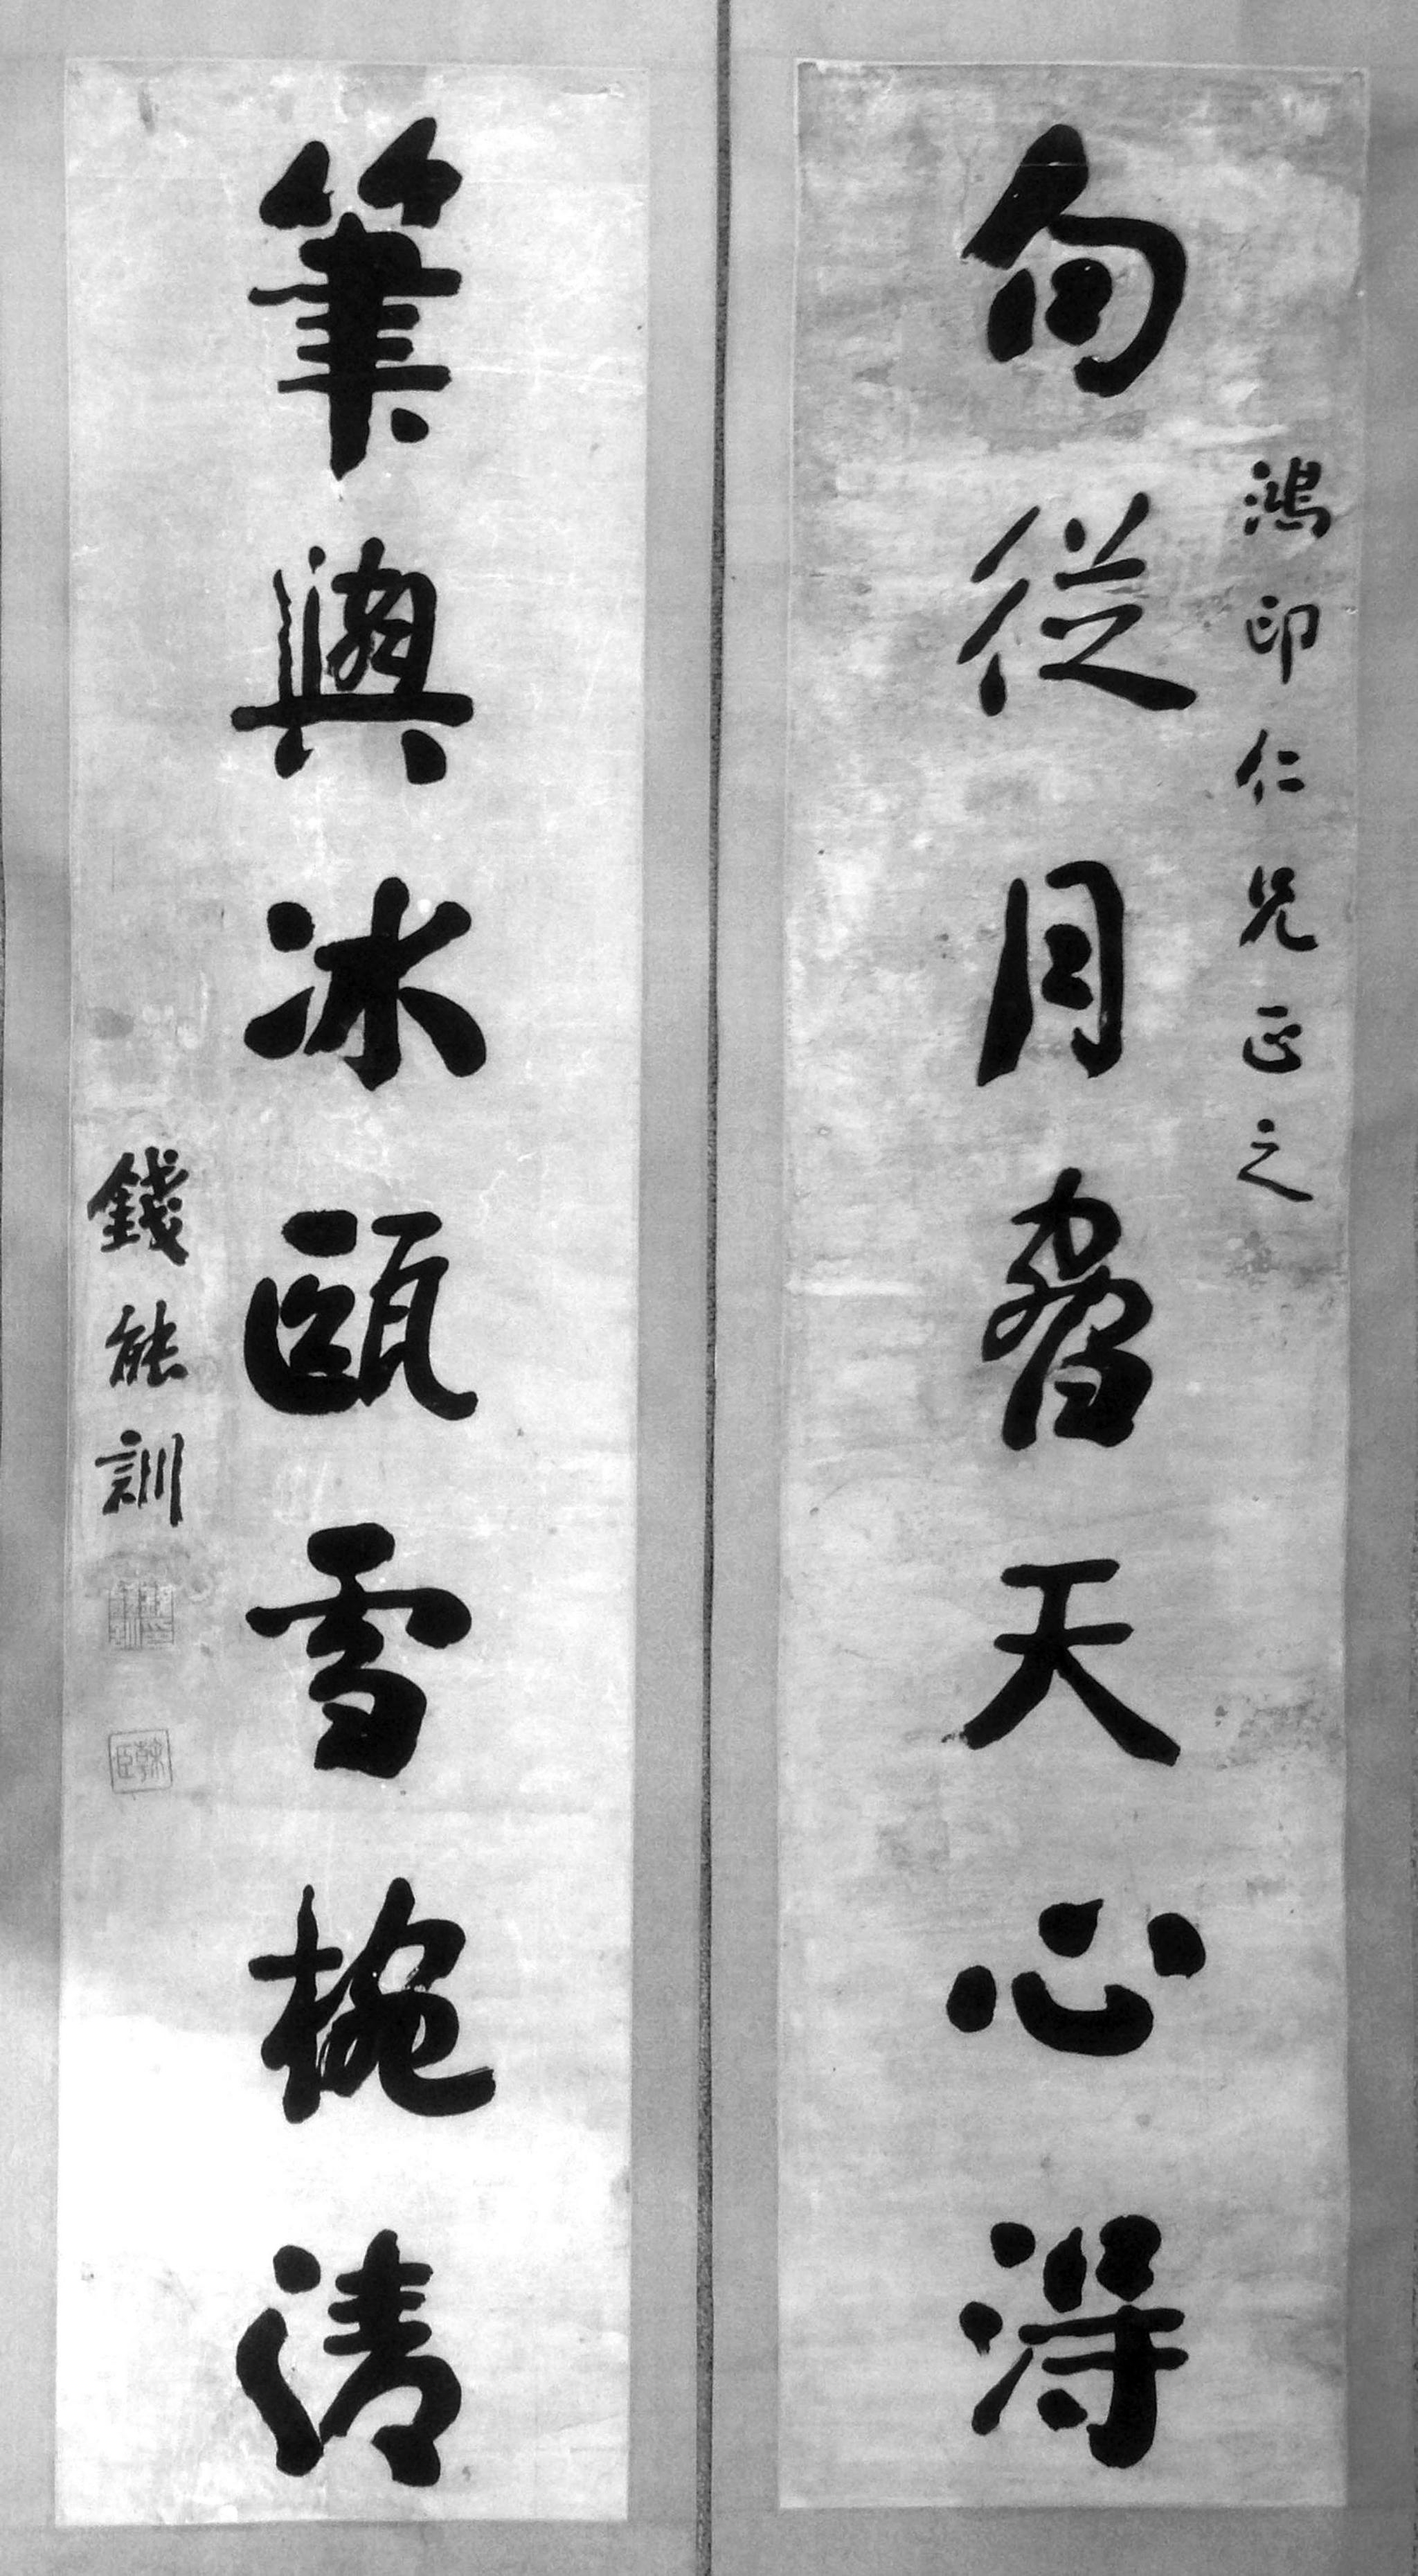 鴻印仁兄正之
句從月脅天心得
筆與冰甌雪椀清
錢能訓
榦臣